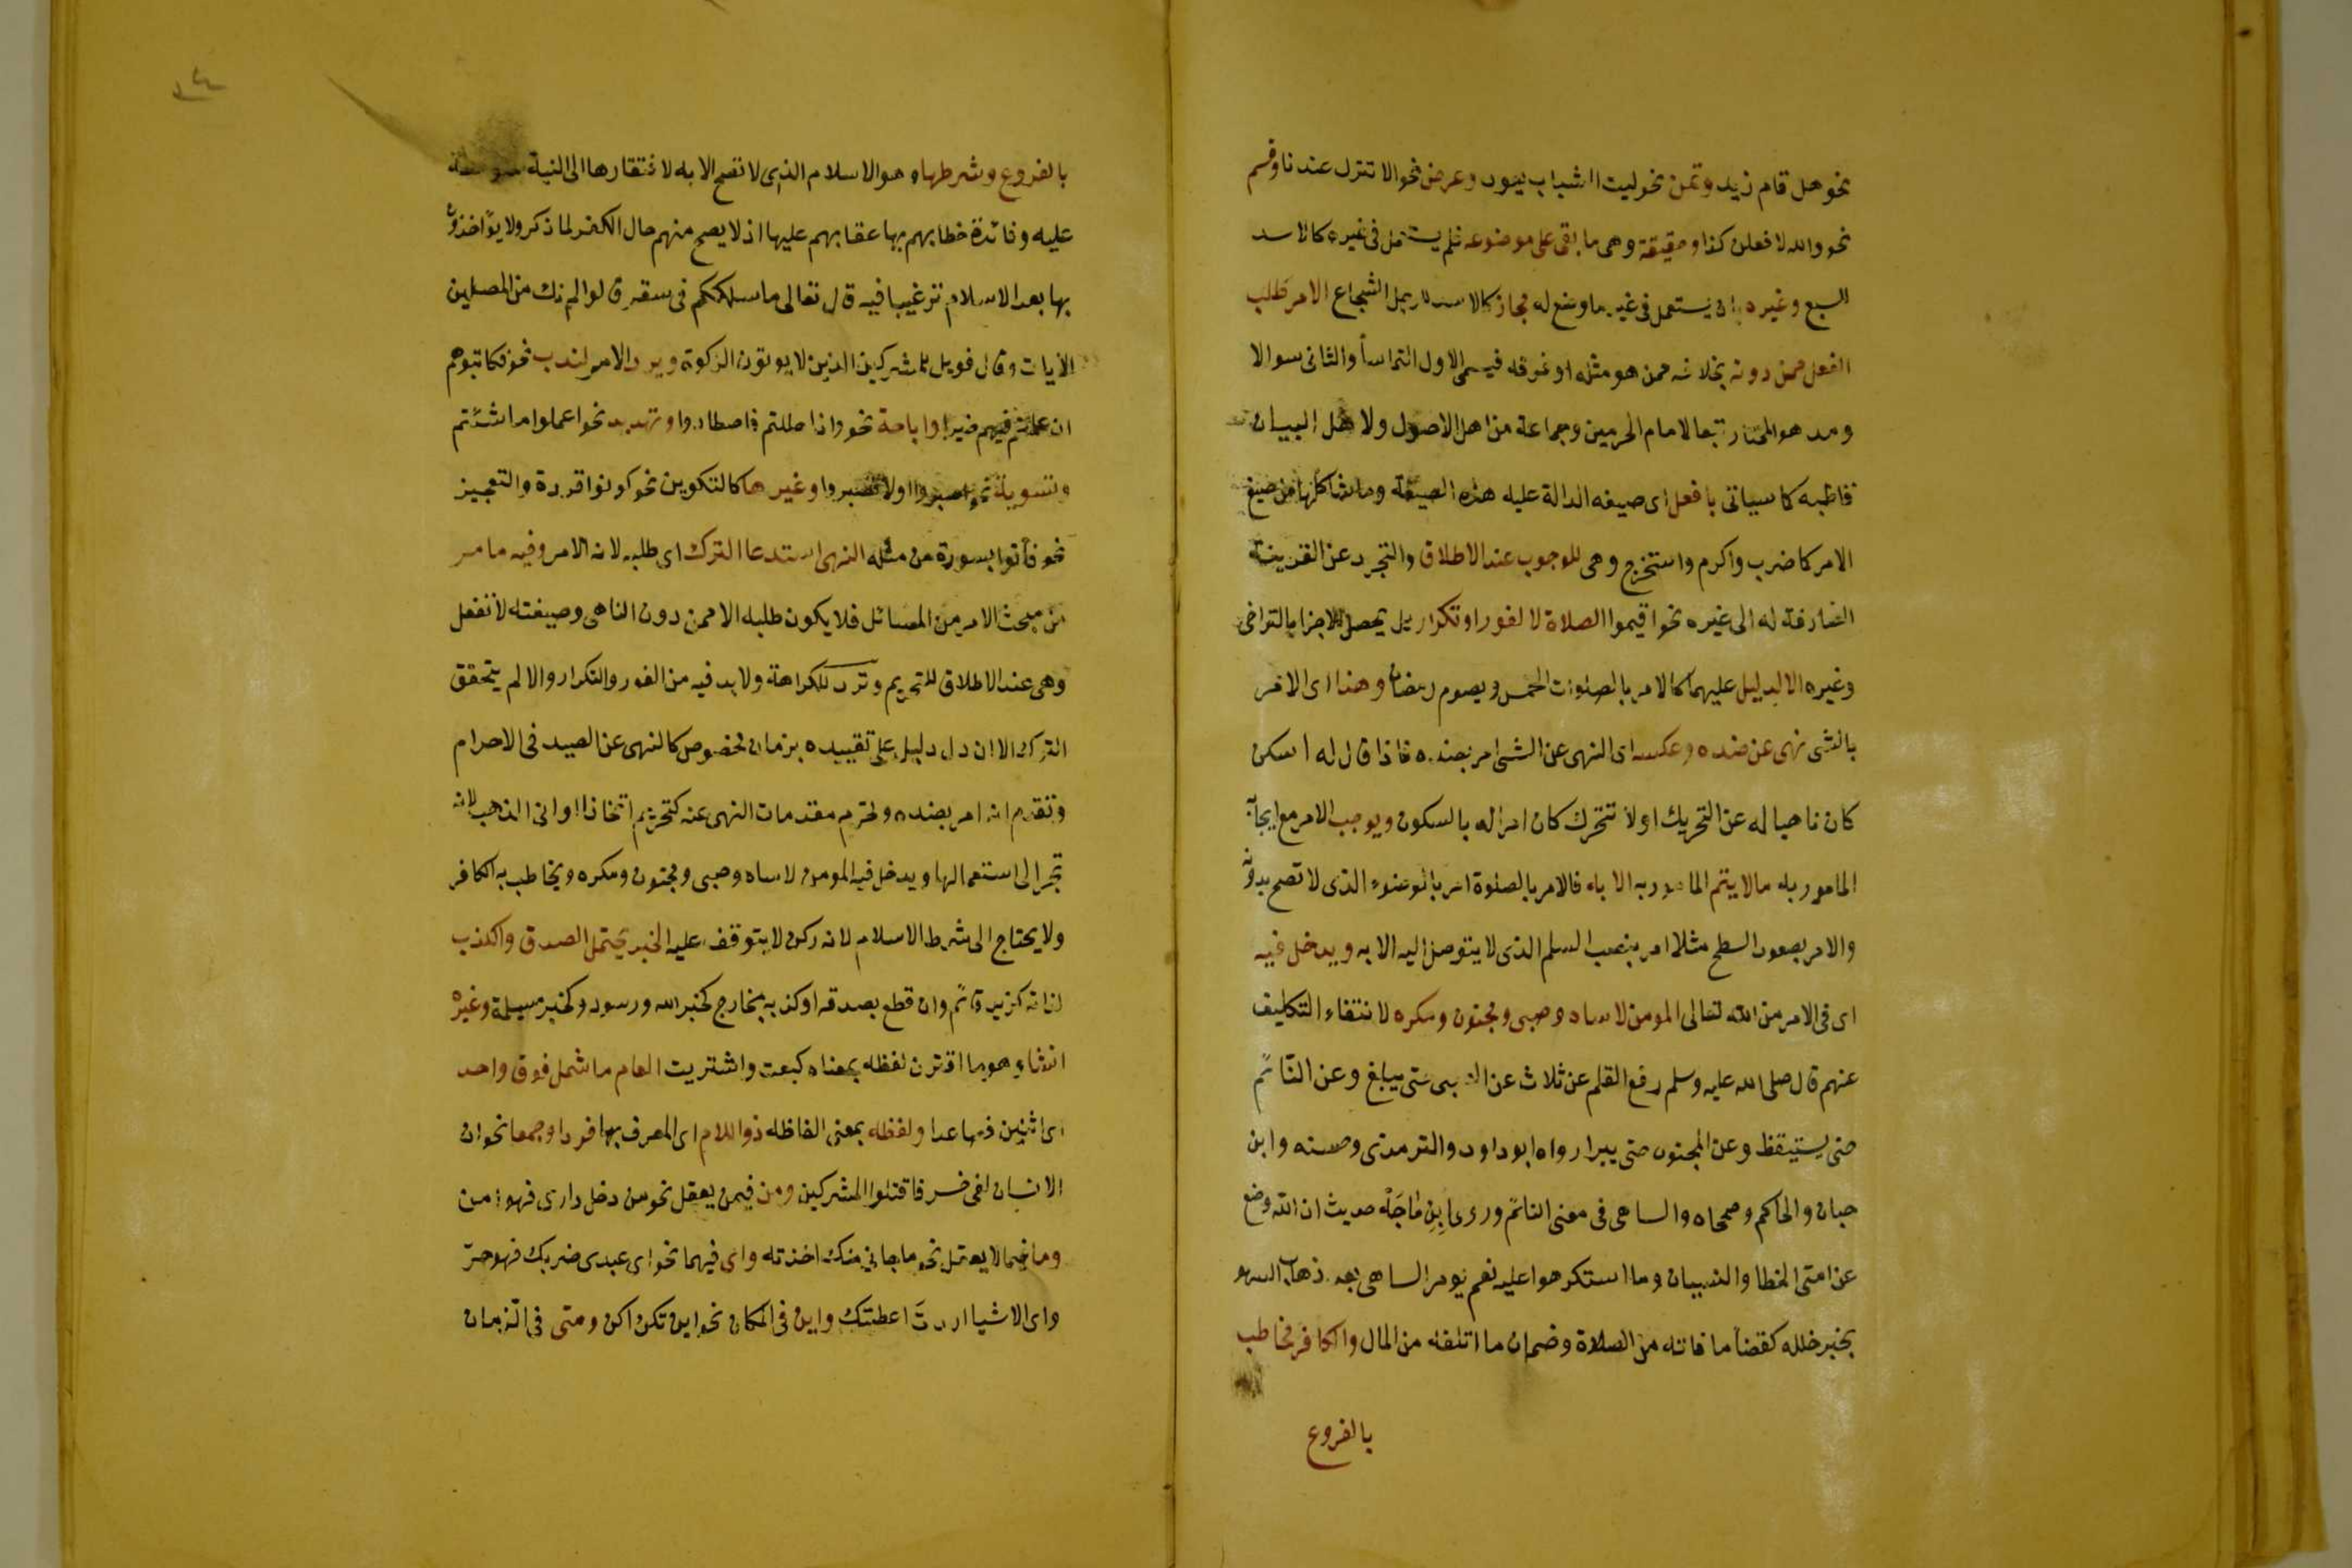 نحو هل قام زيد وتمن نحو ليت الشباب يعود وعرض نحو الا تنزل عندنا وقسم
نحو والله لافعلن كذا وحقيقة وهى ما بقى على موضوعه فلم يستعمل فى غيره كالاسد
للسبع وغيره بان يستعمل فى غير ما وضع له مجاز كالاسد للرجل الشجاع الامر طلب
الفعل ممن دونه بخلافه ممن هو مثله او فوقه فيسمى الاول التماسا والثانى سوالا
وهو المختار تبعا لامام الحرمين وجماعة من اهل الاصول ولاهل البيان
قاطبه كما سياتى بافعل اى صيغه الدالة عليه هذه الصيغة وما شاكلها من صيغ
الامر كاضرب واكرم واستخرج وهى للوجوب عند الاطلاق والتجرد عن القرينة
الصارفة له الى غيره نحو اقيموا الصلاة لا لفور او تكرار بل يحصل الاجزا بالتراخى
وغيره الا لدليل عليهما كالامر بالصلوات الخمس وبصوم رمضان وهذا اى الامر
بالشى نهى عن ضده وعكسه اى النهى عن الشى امر بضده فاذا قال له اسكن
كان ناهيا له عن التحريك او لا تتحرك كان امرا له بالسكون ويوجب الامر مع ايجاب
المامور به مالا يتم المامور به الا به فالامر بالصلوة امر بالوضوء الذى لا تصح بدونه
والامر بصعود السطح مثلا امر بنصب السلم الذى لا يتوصل اليه الا به ويدخل فيه
اى فى الامر من الله تعالى المومن لا ساه وصبى ومجنون ومكره لانتفاء التكليف
عنهم قال صلى الله عليه وسلم رفع القلم عن ثلاث عن الصبى حتى يبلغ وعن النائم
حتى يستيقظ وعن المجنون حتى يبرا رواه ابو داود والترمذى وحسنه وابن
حبان والحاكم وصححاه والساهى فى معنى النائم وروى ابن مَاجَهْ حديث ان الله وضع
عن امتى الخطا والنسيان وما استكرهوا عليه نعم يومر الساهى بعد ذهاب السهو
بجبر خلله كقضا ما فاته من الصلاة وضمان ما اتلفه من المال والكافر مخاطب
بالفروع
بالفروع وشرطها وهو الاسلام الذى لا تصح الا به لافتقارها الى النية
عليه وفائدة خطابهم بها عقابهم عليها اذ لا يصح منهم حال الكفر لما ذكر ولا يؤاخذون
بها بعد الاسلام ترغيبا فيه قال تعالى ما سلككم فى سقر قالوا لم نك من المصلين
الايات وقال فويل للمشركين الذين لا يوتون الزكوة ويرد الامر لندب نحو فكاتبوهم
ان علمتم فيهم خيرا واباحة نحو واذا حللتم فاصطادوا وتهديد نحو اعملوا ما شئتم
وتسوية نحو اصبروا اولا تصبروا وغيرها كالتكوين نحو كونوا قردة والتعجيز
نحو فأتوا بسورة من مثله النهى استدعا الترك اى طلبه لانه الامر وفيه ما مر
من مبحث الامر من المسائل فلا يكون طلبه الا ممن دون الناهى وصيغته لا تفعل
وهى عند الاطلاق للتحريم وترد للكراهة ولا بد فيه من الفور والتكرار والا لم يتحقق
الترك الا ان دل دليل على تقييده بزمان مخصوص كالنهى عن الصيد فى الاحرام
وتقدم انه امر بضده وتحرم مقدمات النهى عنه كتحريم اتخاذ اوانى الذهب لانه
تجر الى استعمالها ويدخل فيه المومن لا ساه وصبى ومجنون ومكره ويخاطب به الكافر
ولا يحتاج الى شرط الاسلام لانه ركن لا يتوقف عليه الخبر يحتمل الصدق والكذب
لذاته كزيد قائم وان قطع بصدقه او كذبه بخارج كخبر الله ورسوله وكخبر مسيلمة وغيره
انشاء وهو ما اقترن لفظه بمعناه كبعت واشتريت العام ما شمل فوق واحد
اى اثنين فصاعدا ولفظه بمعنى الفاظه ذو اللام اى المعرف بها فردا وجمعا نحو ان
الانسان لفى خسر فاقتلوا المشركين ومن فيمن يعقل نحو من دخل دارى فهو امن
وما فيما لا يعقل نحو ما جانى منك اخذته واى فيهما نحو اى عبدى ضربك فهو حرّ
واى الاشيا اردتَ اعطيتك واين فى المكان نحو اين تكن اكن ومتى فى الزمان